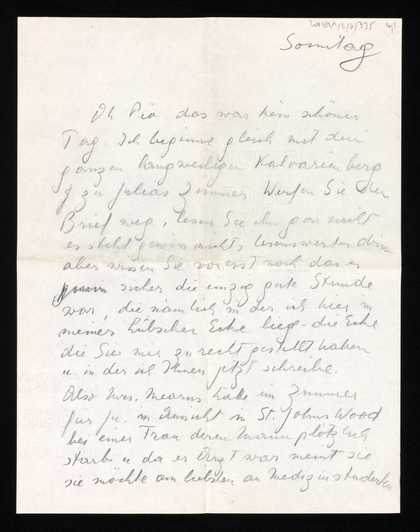 Sonntag
Oh Pia das war kein schöner
Tag. Ich beginne gleich mit dem
ganzen langweiligen Kalvarienberg
zu Julias Zimmer. Werfen Sie den
Brief weg, lesen Sie ihn gar nicht
es steht gewiss nichts lesenswertes drin
aber wissen Sie vorerst noch das es
sicher die einzig gute Stunde
war, die nämlich in der ich hier in
meiner hübschen Ecke liege - die Ecke
die Sie mir zurecht gestellt haben
u. in der ich Ihnen jetzt schreibe.
Also Mrs. Mearns hatte ein Zimmer
für Ju. in Aussicht in St. Johns Wood
bei einer Frau deren Mann plötzlich
starb u. da er Arzt war meint sie
sie möchte am liebsten an Medizinstudenten